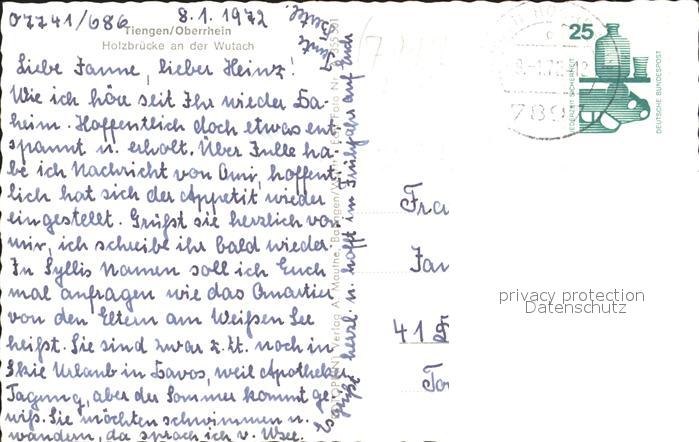 07741/686 8.1.1972
Tiengen/Oberrhein
Holzbrücke an der Wutach
Liebe Janne, lieber Heinz!
Wie ich höre seit Ihr wieder Da-
heim. Hoffentlich doch etwas ent
spannt u. erholt. Über Julle ha-
be ich Nachricht von Omi, hoffent
lich hat sich der Appetit wieder
eingestellt. Grüßt sie herzlich von
mir, ich schreibe ihr bald wieder.
In Syllis Namen soll ich Euch
mal anfragen wie das Quartier
von den Eltern am Weißen See
heißt. Sie sind zwar z. Zt. noch in
Skie Urlaub in Davos, weil Apotheker
Tagung, aber der Sommer kommt ge-
wiß. Sie möchten schwimmen u.
wandern, da sprach ich v. W.See.
Es grüßt herzl. u. hofft im Frühjahr auf Euch
Tante
Fra
Jan
41
25
JEDERZEIT SICHERHEIT
DEUTSCHE BUNDESPOST
7897
privacy protection
Datenschutz